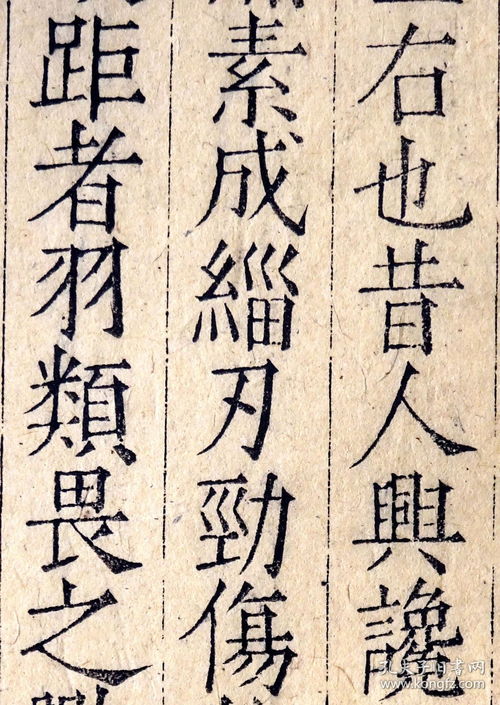 右也昔人興讒
素成緇刃勁傷
距者羽類畏之
孔夫子旧书网
www.kongfz.com